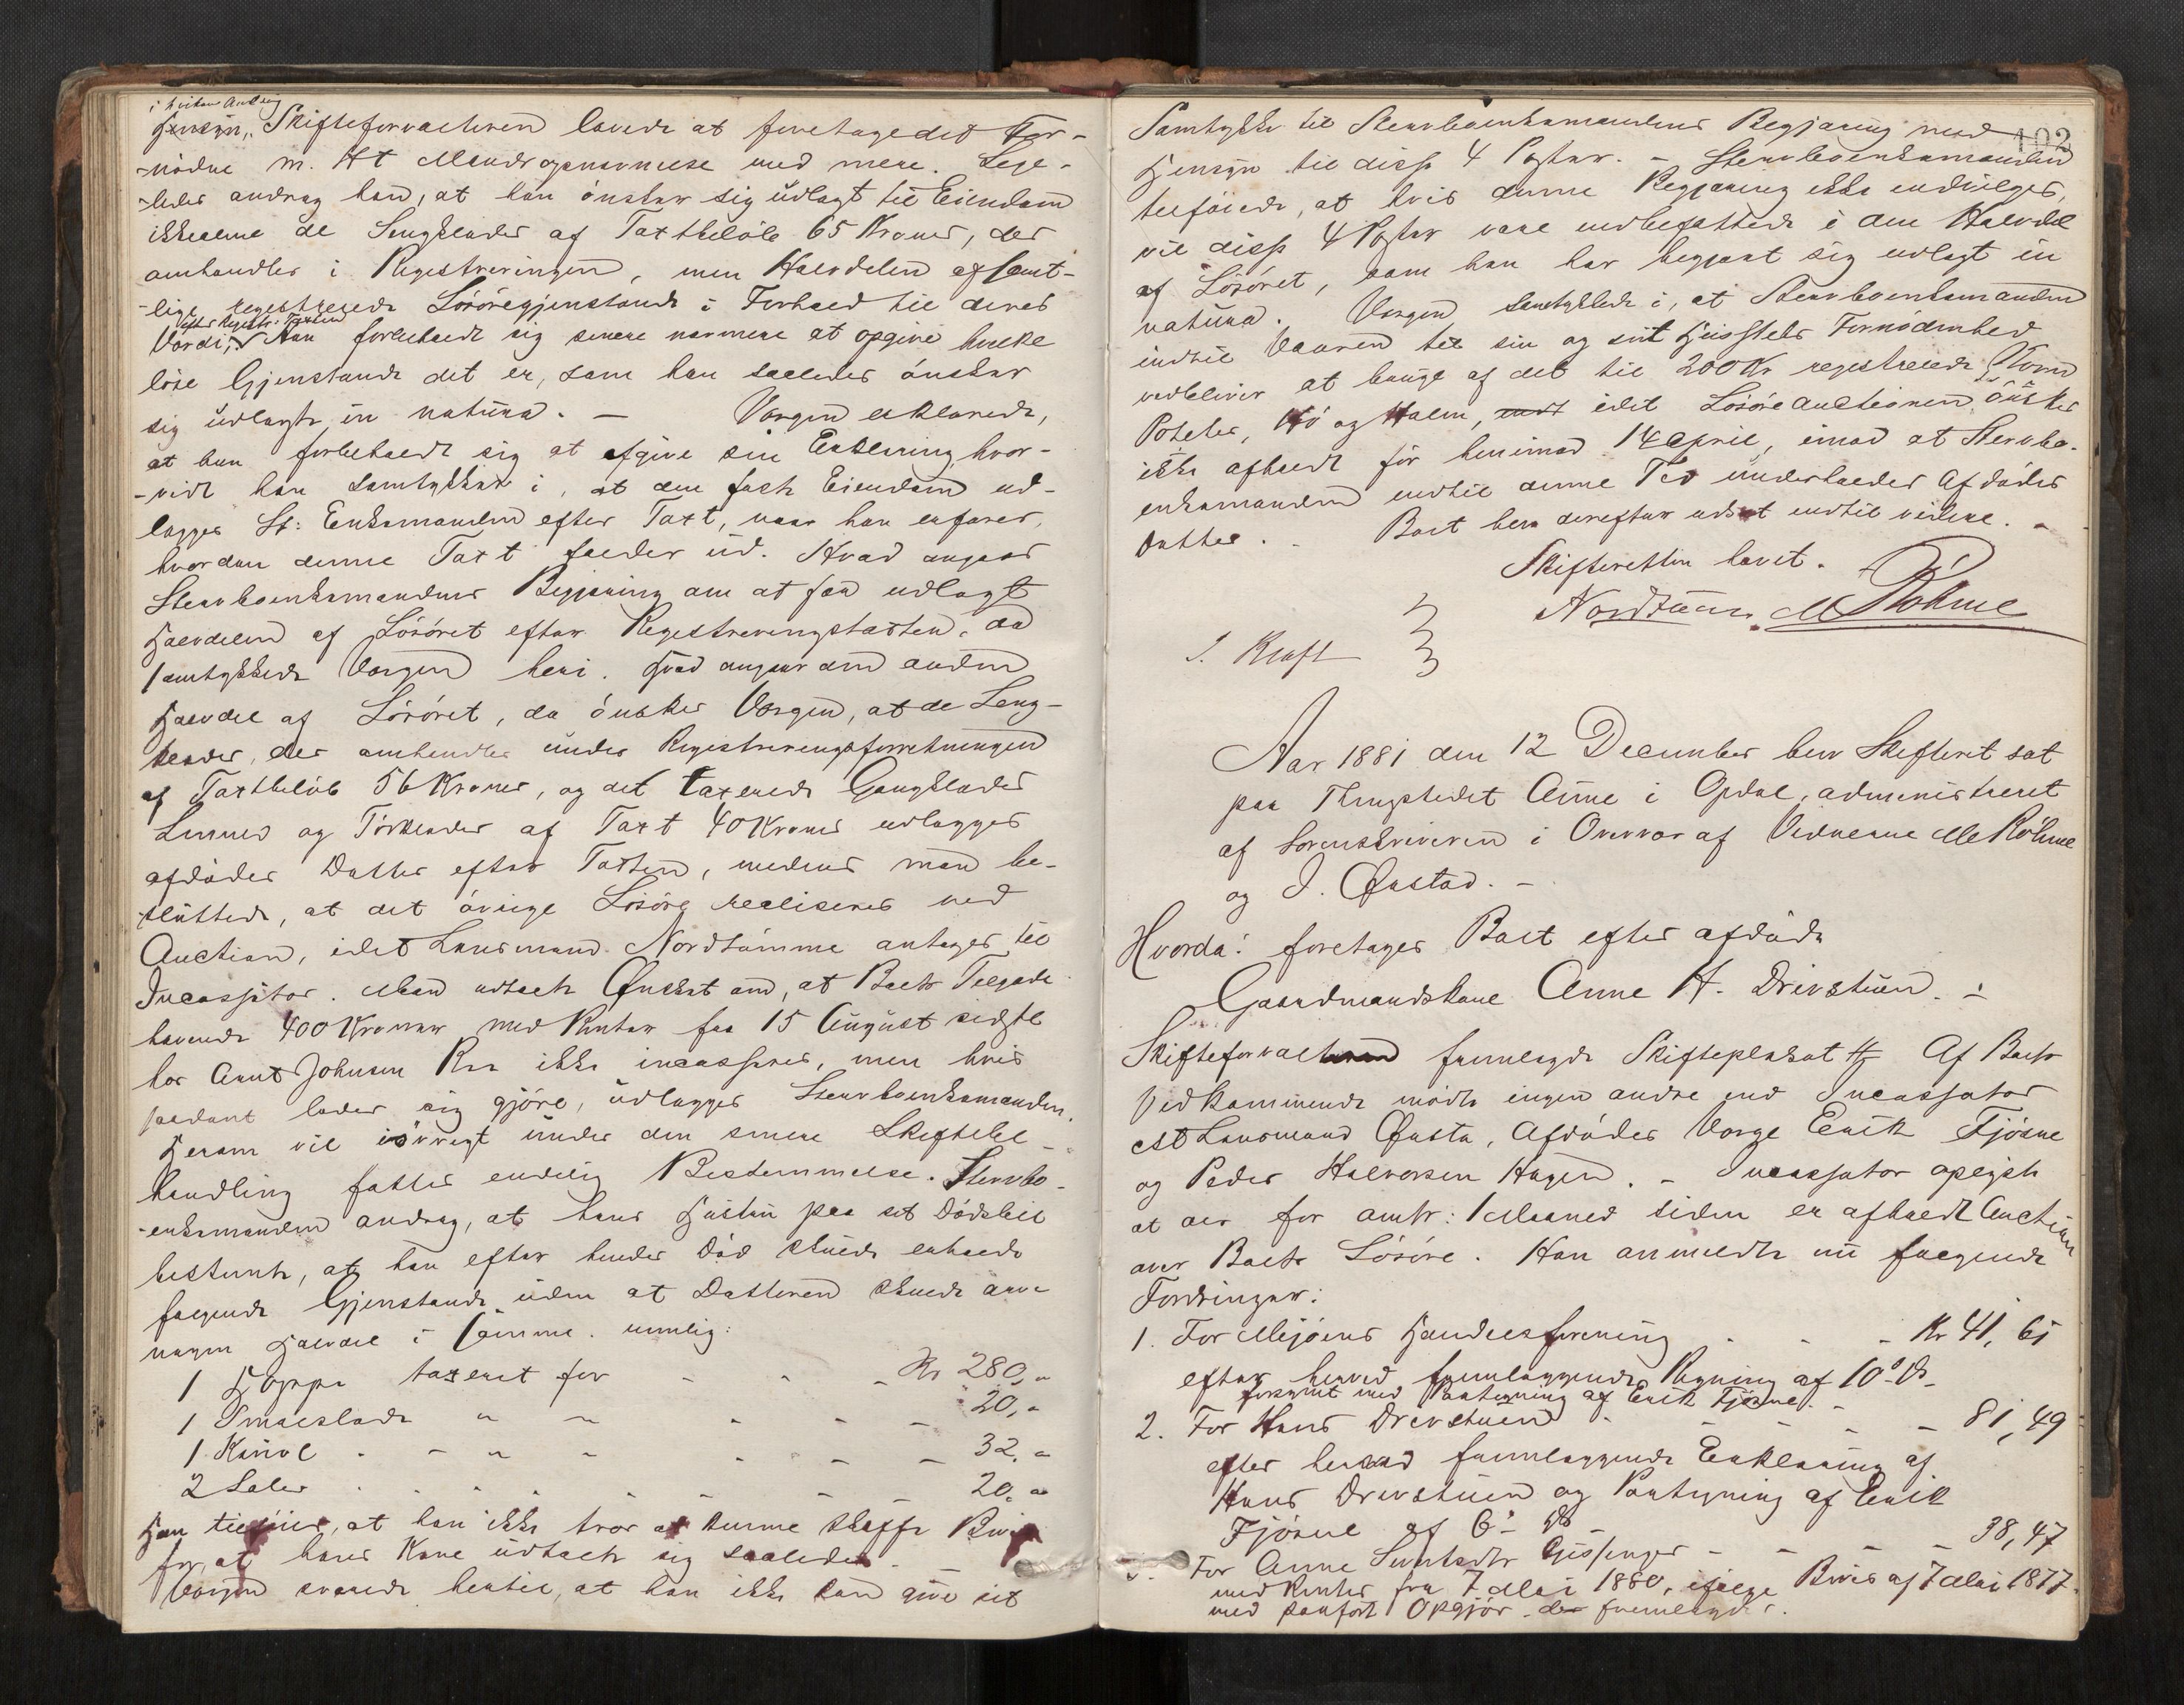 i hvilken Anledning
Hensyn, Skifteforvalteren lovede at foretage det For-
-nødne m. H t Mandsopnævnelse med mere. Lige-
-ledes androg han, at han ønsker sig udlagt til Eiendom
ikke alene de Sengklæder af Taxtbeløb 65 Kroner, der
omhandles i Registreringen, men Halvdelen af samt-
-lige registrerede Løsøregjenstande i Forhold til deres
efter Registr: Taxten
Værdi; Han forbeholdt sig senere nærmere at opgive hvilke
løse Gjenstande det er, som han saaledes ønsker
sig udlagt in natura. — Værgen erklærede,
at han forbeholdt sig at afgive sin Erklæring, hvor-
-vidt han samtykker i, at den faste Eiendom ud-
lægges St: Enkemanden efter Taxt, naar han erfarer,
hvordan denne Taxt falder ud. Hvad angaar
Stervboenkemandens Begjæring om at faa udlagt
Halvdelen af Løsøret efter Registreringstaxten, da
samtykkede Værgen heri. Hvad angaar den anden
Halvdel af Løsøret, da ønsker Værgen, at de Seng-
klæder, der omhandles under Registreringsforretningen
af Taxtbeløb 56 Kroner, og det taxerede Gangklæder
Linned og Tørklæder af Taxt 40 Kroner udlægges
afdødes Datter efter Taxten, medens man be-
-sluttede, at det øvrige Løsøre realiseres ved
Auction, idet Lensmand Nordtømme antages til
Incassator. Man udtalte Ønsket om, at Boets Tilgode-
havende 400 Kroner med Renter fra 15 August sidstl
hos Arnt Johnsen Rise ikke incasseres, men hvis
saadant lader sig gjøre, udlægges Stervboenkemanden.
Herom vil iøvrigt under den senere Skiftebe-
handling fattes endelig Bestemmelse. Stervbo-
-enkemanden androg, at hans Hustru paa sit Dødsleie
bestemte, at han efter hendes Død skulde erholde
følgende Gjenstande uden at Datteren skulde arve
nogen Halvdel i samme. nemlig:
1 Hoppe taxeret for - - - Kr 280,"
1 Smalslæde " " - - - 20,"
1 Karjol - " " - - - 32,"
2 Seler - - - - - 20."
Han tilføier, at han ikke tror at kunne skaffe Bevis
for, at hans Kone udtalte sig saaledes.
Værgen svarede hertil, at han ikke kan give sit
102
Samtykke til Stervboenkemandens Begjæring med
Hensyn til disse 4 Poster. - Stervboenkemanden
tilføiede, at hvis denne Begjæring ikke indvilges,
vil disse 4 Poster være indbefattede i den Halvdel
af Løsøret, som han har begjært sig udlagt in
natura. Værgen samtykkede i, at Stervboenkemanden
indtil Vaaren til sin og sit Huusstels Fornødenhed
vedbliver at bruge af det til 200 Kr registrerede Korn
Poteter, Hø og Halm, idet Løsøreauctionen ønskes
ikke afholdt før henimod 14 April, imod at Stervbo-
enkemanden indtil denne Tid underholder Afdødes
Datter. - Boet blev derefter udsat indtil videre. -
Skifteretten hævet.
Nordtømme. M Røhme
J. Kraft
Aar 1881 den 12 December blev Skifteret sat
paa Thingstedet Aune i Opdal, administreret
af Sorenskriveren i Overvær af Vidnerne M Røhme
og J. Ørstad. -
Hvorda: foretages Boet efter afdøde
Gaardmandskone Anne H. Drivstuen. -
Skifteforvalteren fremlagde Skifteplakat Af Boets
Vedkommende mødte ingen andre end Incassator
cst Lensmand Ørsta, Afdødes Værge Erik Fjøsne
og Peder Halvorsen Hagen. - Incassator oplyste
at der for omtr: 1 Maaned siden er afholdt Auction
over Boets Løsøre. Han anmeldte nu følgende
Fordringer:
1. For Meøiens Handelsforening - - - Kr 41,61
efter herved fremlæggende Regning af 10' Ds
forsynet med Paategning af Erik Fjøsne. -
2. For Hans Drivstuen - - - - 81,49
efter herved fremlæggende Erklæring af
Hans Drivstuen og Paategning af Erik
Fjøsne af 6' ds
3. For Anne Sivertsdtr Gissinger - - - - 38,47
med Renter fra 7 Mai 1880, ifølge Bevis af 7 Mai 1877.
med Opgjør fremlagdes.